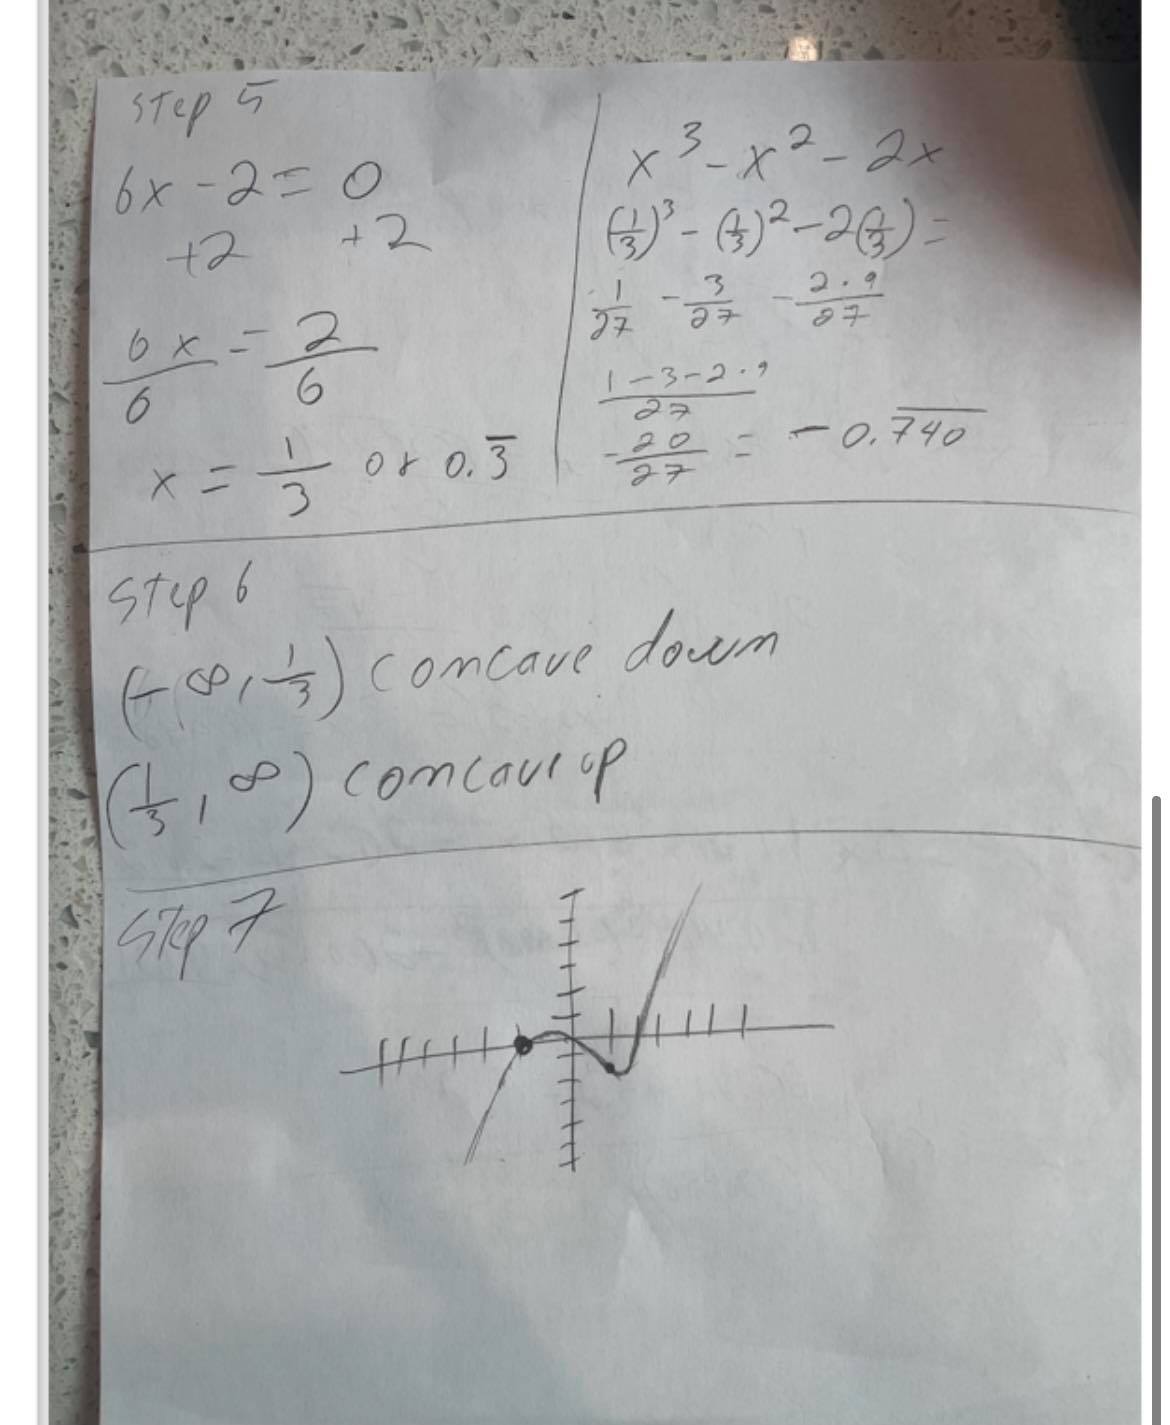 Step 5
6x - 2 = 0
+2 +2
6x/6 = 2/6
x = 1/3 or 0.3̅
x³ - x² - 2x
(1/3)³ - (1/3)² - 2(1/3) =
1/27 - 3/27 - 2·9/27
1-3-2·9/27
-20/27 = -0.7̅4̅0̅
Step 6
(-∞, 1/3) concave down
(1/3, ∞) concave up
Step 7